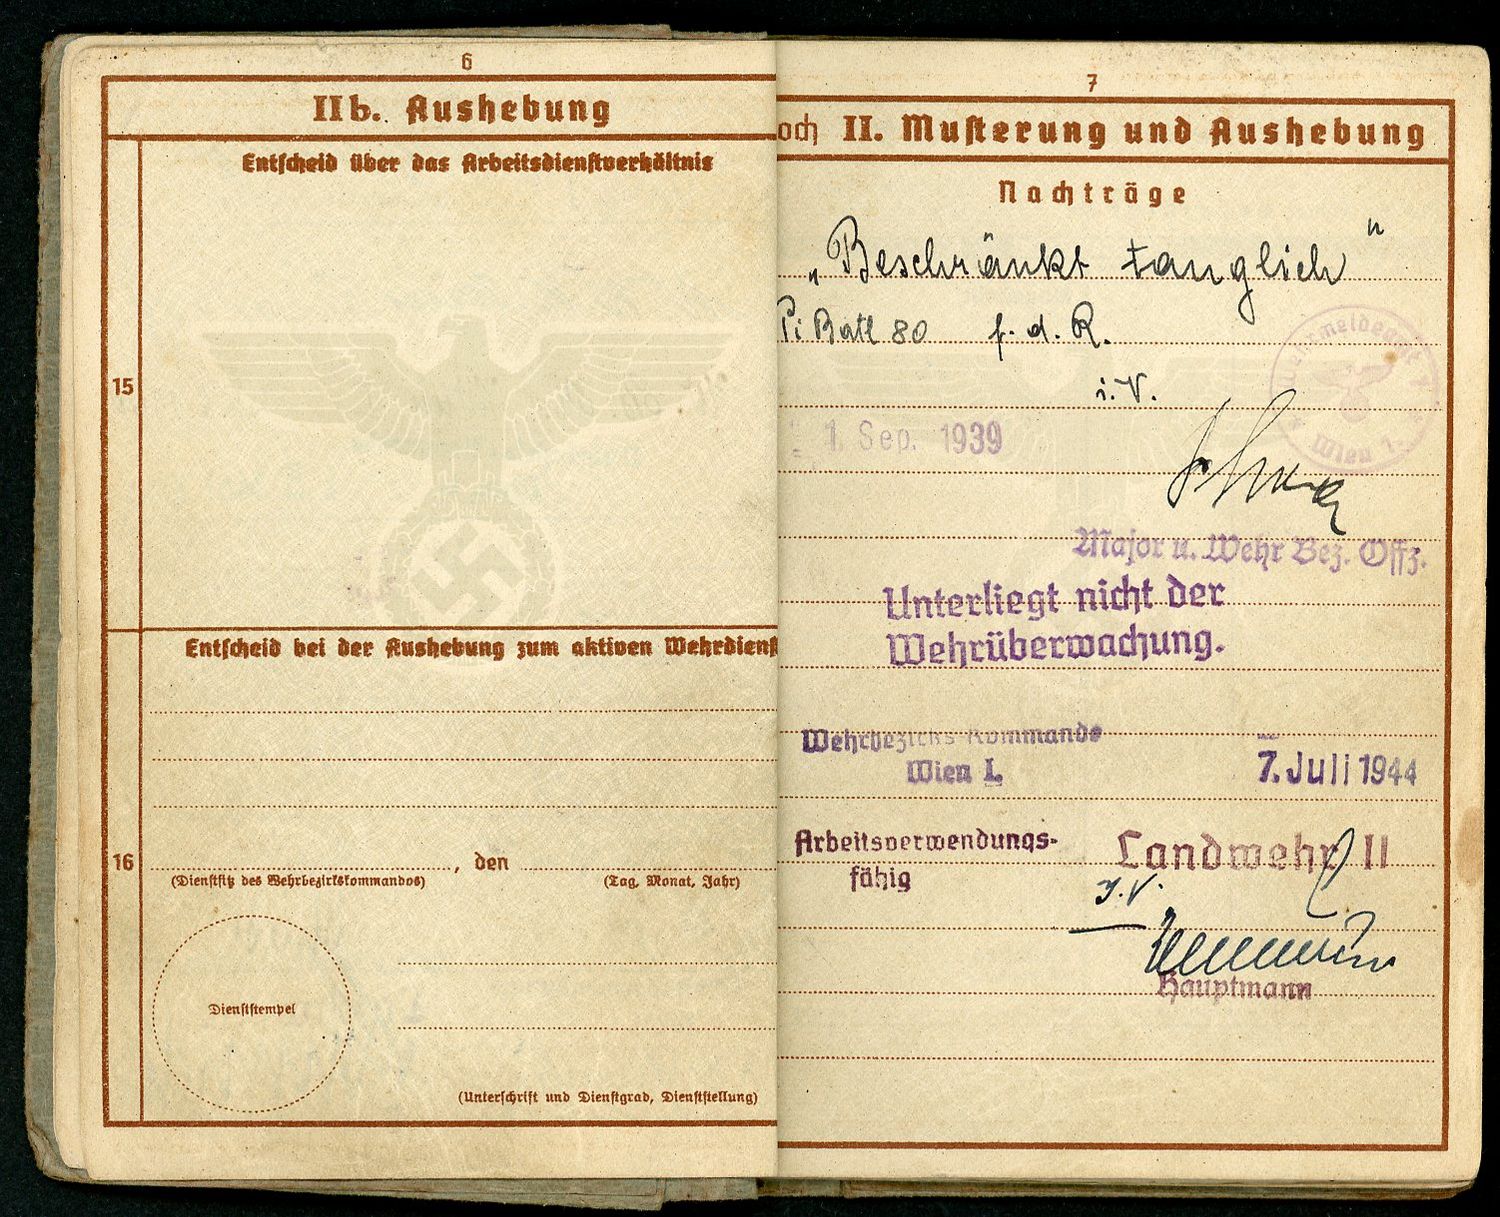 6
IIb. Aushebung
Entscheid über das Arbeitsdienstverhältnis
15
Entscheid bei der Aushebung zum aktiven Wehrdienst
16
, den
(Dienstsitz des Wehrbezirkskommandos)
(Tag, Monat, Jahr)
Dienststempel
(Unterschrift und Dienstgrad, Dienststellung)
7
och II. Musterung und Aushebung
Nachträge
„Beschränkt tauglich"
Pi Batl 80 f. d. R.
i. V.
Wehrmeldeamt
Wien 1.
1. Sep. 1939
Major u. Wehr Bez. Offz.
Unterliegt nicht der
Wehrüberwachung.
Wehrbezirks-Kommando
Wien I.
7. Juli 1944
Arbeitsverwendungs-
fähig
Landwehr II
I.V.
Hauptmann